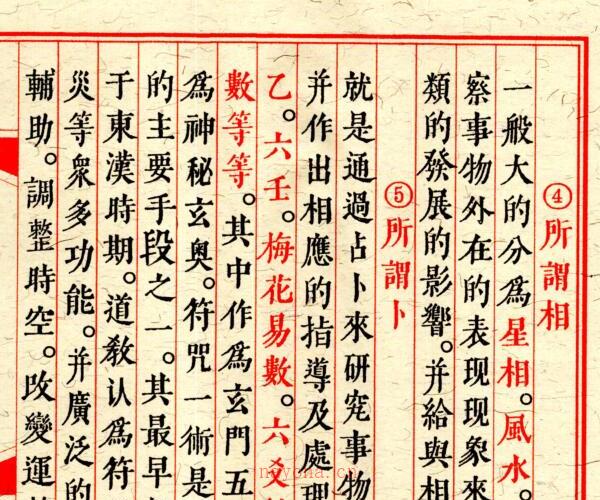 ④所謂相
一般大的分爲星相。風水。
察事物外在的表現現象來
類的發展的影響。并給與相
⑤所謂卜
就是通過占卜來研究事物
并作出相應的指導及處理
乙。六壬。梅花易數。六爻
數等等。其中作爲玄門五
爲神秘玄奥。符咒一術是
的主要手段之一。其最早
于東漢時期。道教认爲符
災等衆多功能。并廣泛的
輔助。調整時空。改變運